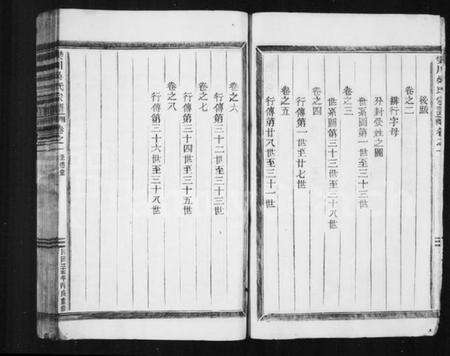 後跋
卷之二
排行字母
世系圖第一世至三十三世
卷之三
世系圖第三十三世至三十八世
卷之四
行傳第一世至廿七世
卷之五
行傳第廿八世至三十一世
卷之六
行傳第三十二世至三十三世
卷之七
行傳第三十四世至三十五世
卷之八
行傳第三十六世至三十八世